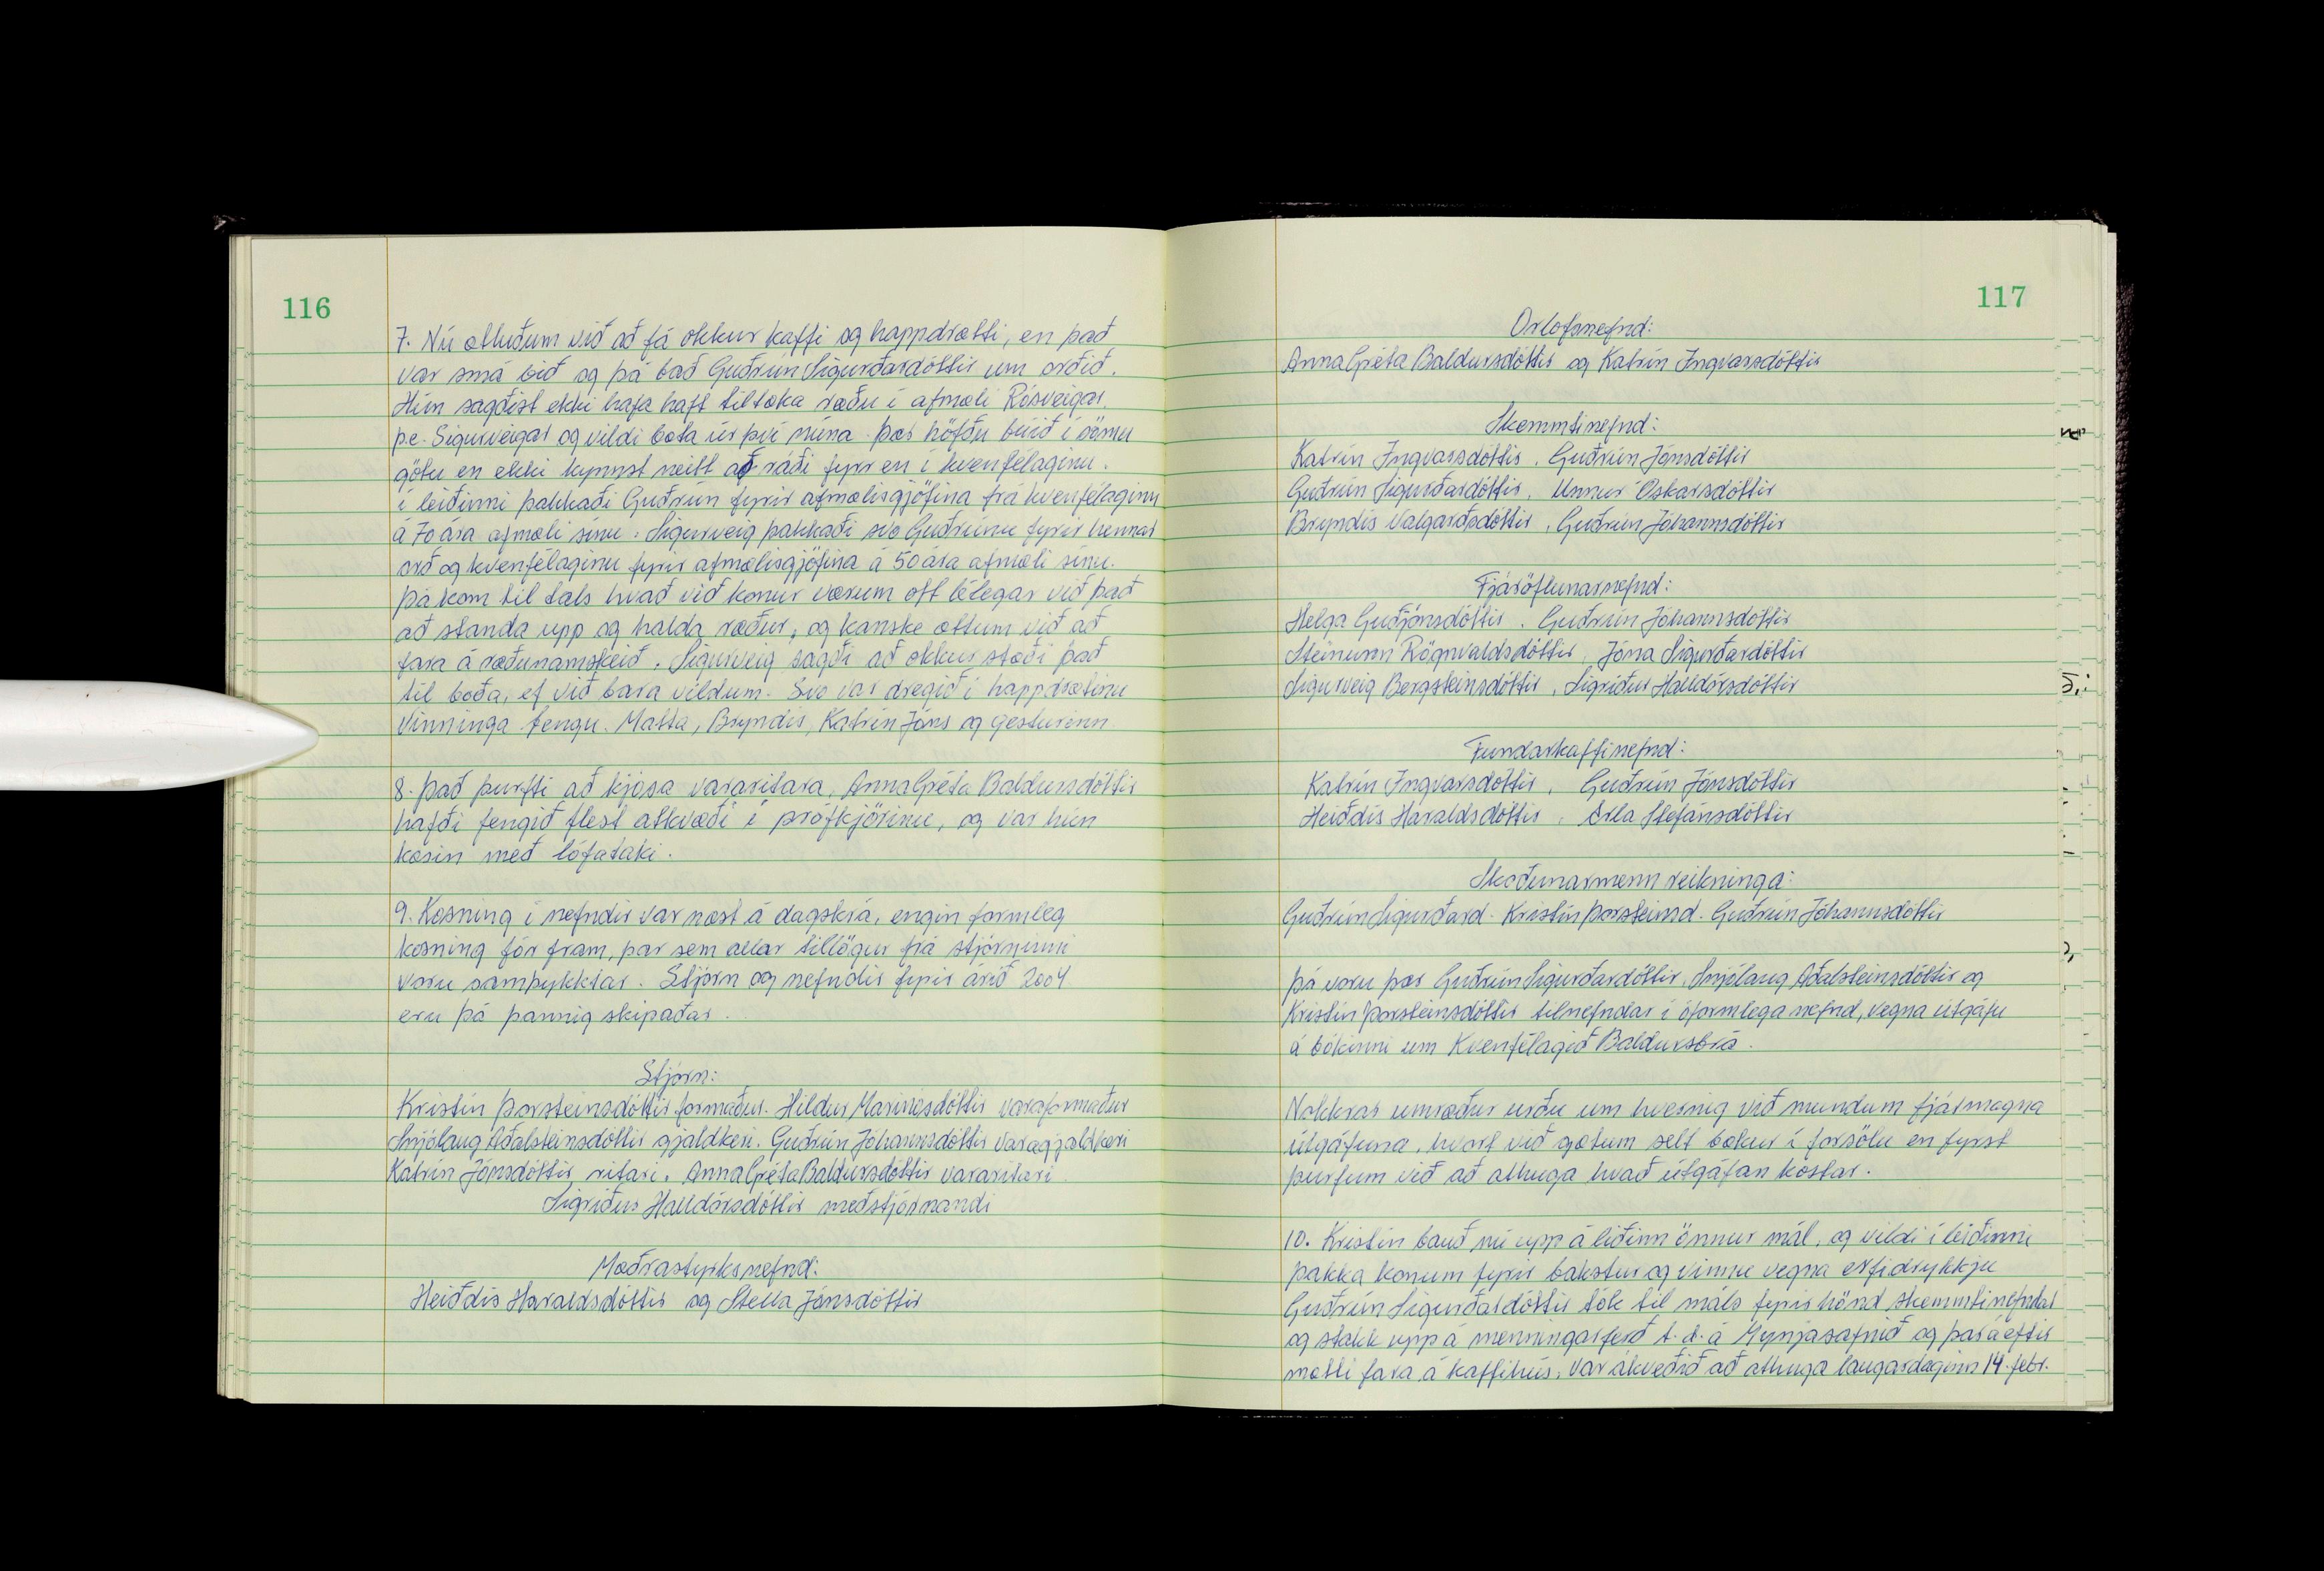 116
7. Nú ætluðum við að fá okkur kaffi og happdrætti, en það
var smá bið og þá bað Guðrún Sigurðardóttir um orðið.
Hún sagðist ekki hafa haft tiltæka ræðu í afmæli Rósveigar,
þ.e. Sigurveigar og vildi bæta úr því núna. Þær höfðu búið í sömu
götu en ekki kynnst neitt að ráði fyrr en í kvenfélaginu.
í leiðinni þakkaði Guðrún fyrir afmælisgjöfina frá kvenfélaginu
á 70 ára afmæli sínu. Sigurveig þakkaði svo Guðrúnu fyrir hennar
orð og kvenfélaginu fyrir afmælisgjöfina á 50 ára afmæli sínu.
Þá kom til tals hvað við konur værum oft lélegar við það
að standa upp og halda ræður, og kanske ættum við að
fara á ræðunamskeið. Sigurveig sagði að okkur stæði það
til boða, ef við bara vildum. Svo var dregið í happdrætinu
Vinninga fengu. Matta, Bryndís, Katrín Jóns og gesturinn
8. Það þurfti að kjósa vararitara, Anna Gréta Baldursdóttir
hafði fengið flest atkvæði í prófkjörinu, og var hún
kosin með lófataki.
9. Kosning í nefndir var næst á dagskrá, engin formleg
kosning fór fram, þar sem allar tillögur frá stjórninni
voru samþykktar. Stjórn og nefndir fyrir árið 2004
eru þá þannig skipaðar.
Stjórn:
Kristín Þorsteinsdóttir formaður. Hildur Marinósdóttir varaformaður
Snjólaug Aðalsteinsdóttir gjaldkeri. Guðrún Jóhannsdóttir varagjaldkeri
Katrín Jónsdóttir ritari. Anna Gréta Baldursdóttir vararitari
Sigríður Halldórsdóttir meðstjórnandi
Mæðrastyrksnefnd:
Heiðdís Haraldsdóttir og Stella Jónsdóttir
117
Orlofsnefnd:
Anna Gréta Baldursdóttir og Katrín Ingvarsdóttir
Skemmtinefnd:
Katrín Ingvarsdóttir. Guðrún Jónsdóttir
Guðrún Sigurðardóttir. Unnur Óskarsdóttir
Bryndís Valgarðsdóttir. Guðrún Jóhannsdóttir
Fjáröflunarnefnd:
Helga Guðjónsdóttir. Guðrún Jóhannsdóttir
Steinunn Rögnvaldsdóttir. Jóna Sigurðardóttir
Sigurveig Bergsteinsdóttir. Sigríður Halldórsdóttir
Fundarkaffinefnd:
Katrín Ingvarsdóttir. Guðrún Jónsdóttir
Heiðdís Haraldsdóttir. Stefánsdóttir
Skoðunarmenn reikninga:
Guðrún Sigurðard. Kristín Þorsteinsd. Guðrún Jóhannsdóttir
Þá voru þær Guðrún Sigurðardóttir, Snjólaug Aðalsteinsdóttir og
Kristín Þorsteinsdóttir tilnefndar í óformlega nefnd, vegna útgáfu
á bókinni um Kvenfélagið Baldursbrá.
Nokkrar umræður urðu um hvernig við mundum fjármagna
útgáfuna, hvort við gætum selt bækur í forsölu en fyrst
þurfum við að athuga hvað útgáfan kostar.
10. Kristín bauð nú upp á liðinn önnur mál, og vildi í leiðinni
þakka konum fyrir bakstur og vinnu vegna erfidrykkju
Guðrún Sigurðardóttir tók til máls fyrir hönd skemmtinefndar
og stakk upp á menningarferð t.d. á Mynjasafnið og þar á eftir
mætti fara á kaffihús. Var ákveðið að athuga laugardaginn 14. febr.